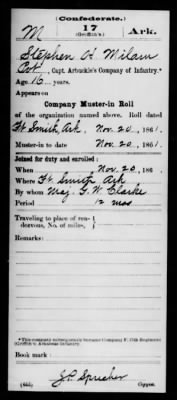 (Confederate.)
M 17 Ark.
(Griffin's.)
Stephen H Milam
Pvt, Capt. Arbuckle's Company of Infantry.*
Age 16 years.
Appears on
Company Muster-in Roll
of the organization named above. Roll dated
Ft. Smith Ark, Nov. 20, 1861.
Muster-in to date Nov. 20, 1861.
Joined for duty and enrolled:
When Nov. 20, 186 .
Where Ft. Smith Ark
By whom Maj. G. W. Clarke
Period 12 mos
Traveling to place of ren-
dezvous, No. of miles,
Remarks:
*This company subsequently became Company F, 17th Regiment
(Griffin's) Arkansas Infantry.
Book mark:
(465) J. P. Sprecher
Copyist.